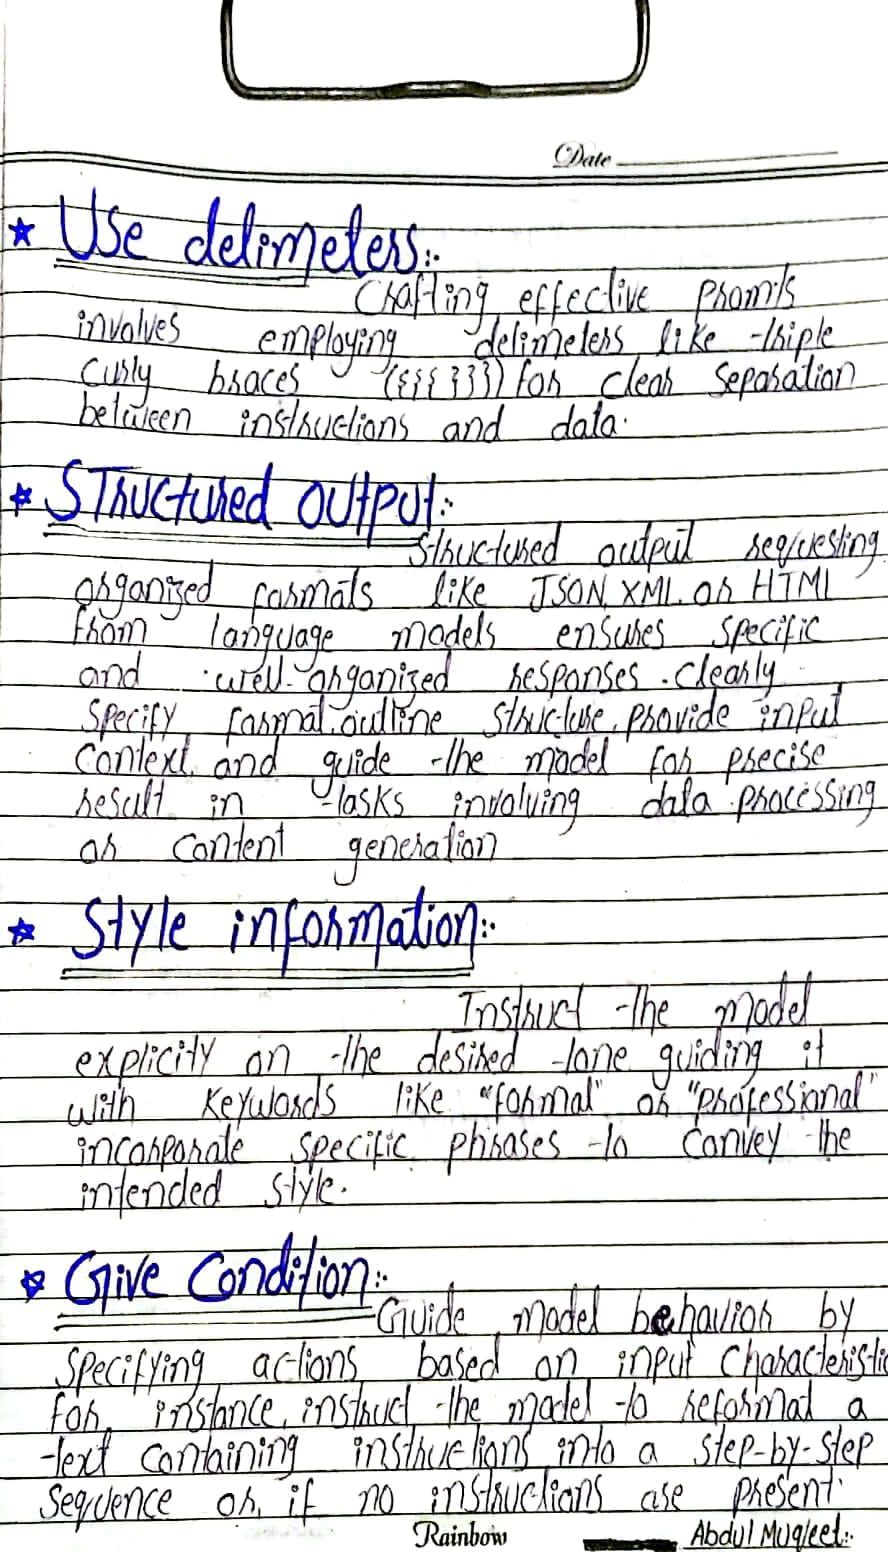 Date
Use delimeters:
Crafting effective promts
involves employing delimeters like triple
curly braces ({{{ }}}) for clear separation
between instructions and data.
Structured output:
Structured output requesting
organized formats like JSON, XML or HTML
from language models ensures specific
and well-organized responses. Clearly
specify format, outline structure, provide input
context, and guide the model for precise
result in tasks involving data processing
or content generation
Style information:
Instruct the model
explicity on the desired tone guiding it
with keywords like "formal" or "professional"
incorporate specific phrases to convey the
intended style.
Give Condition:
Guide model behavior by
specifying actions based on input characteristic
for instance, instruct the model to reformat a
text containing instructions into a step-by-step
sequence or, if no instructions are present.
Rainbow
Abdul Muqeet: